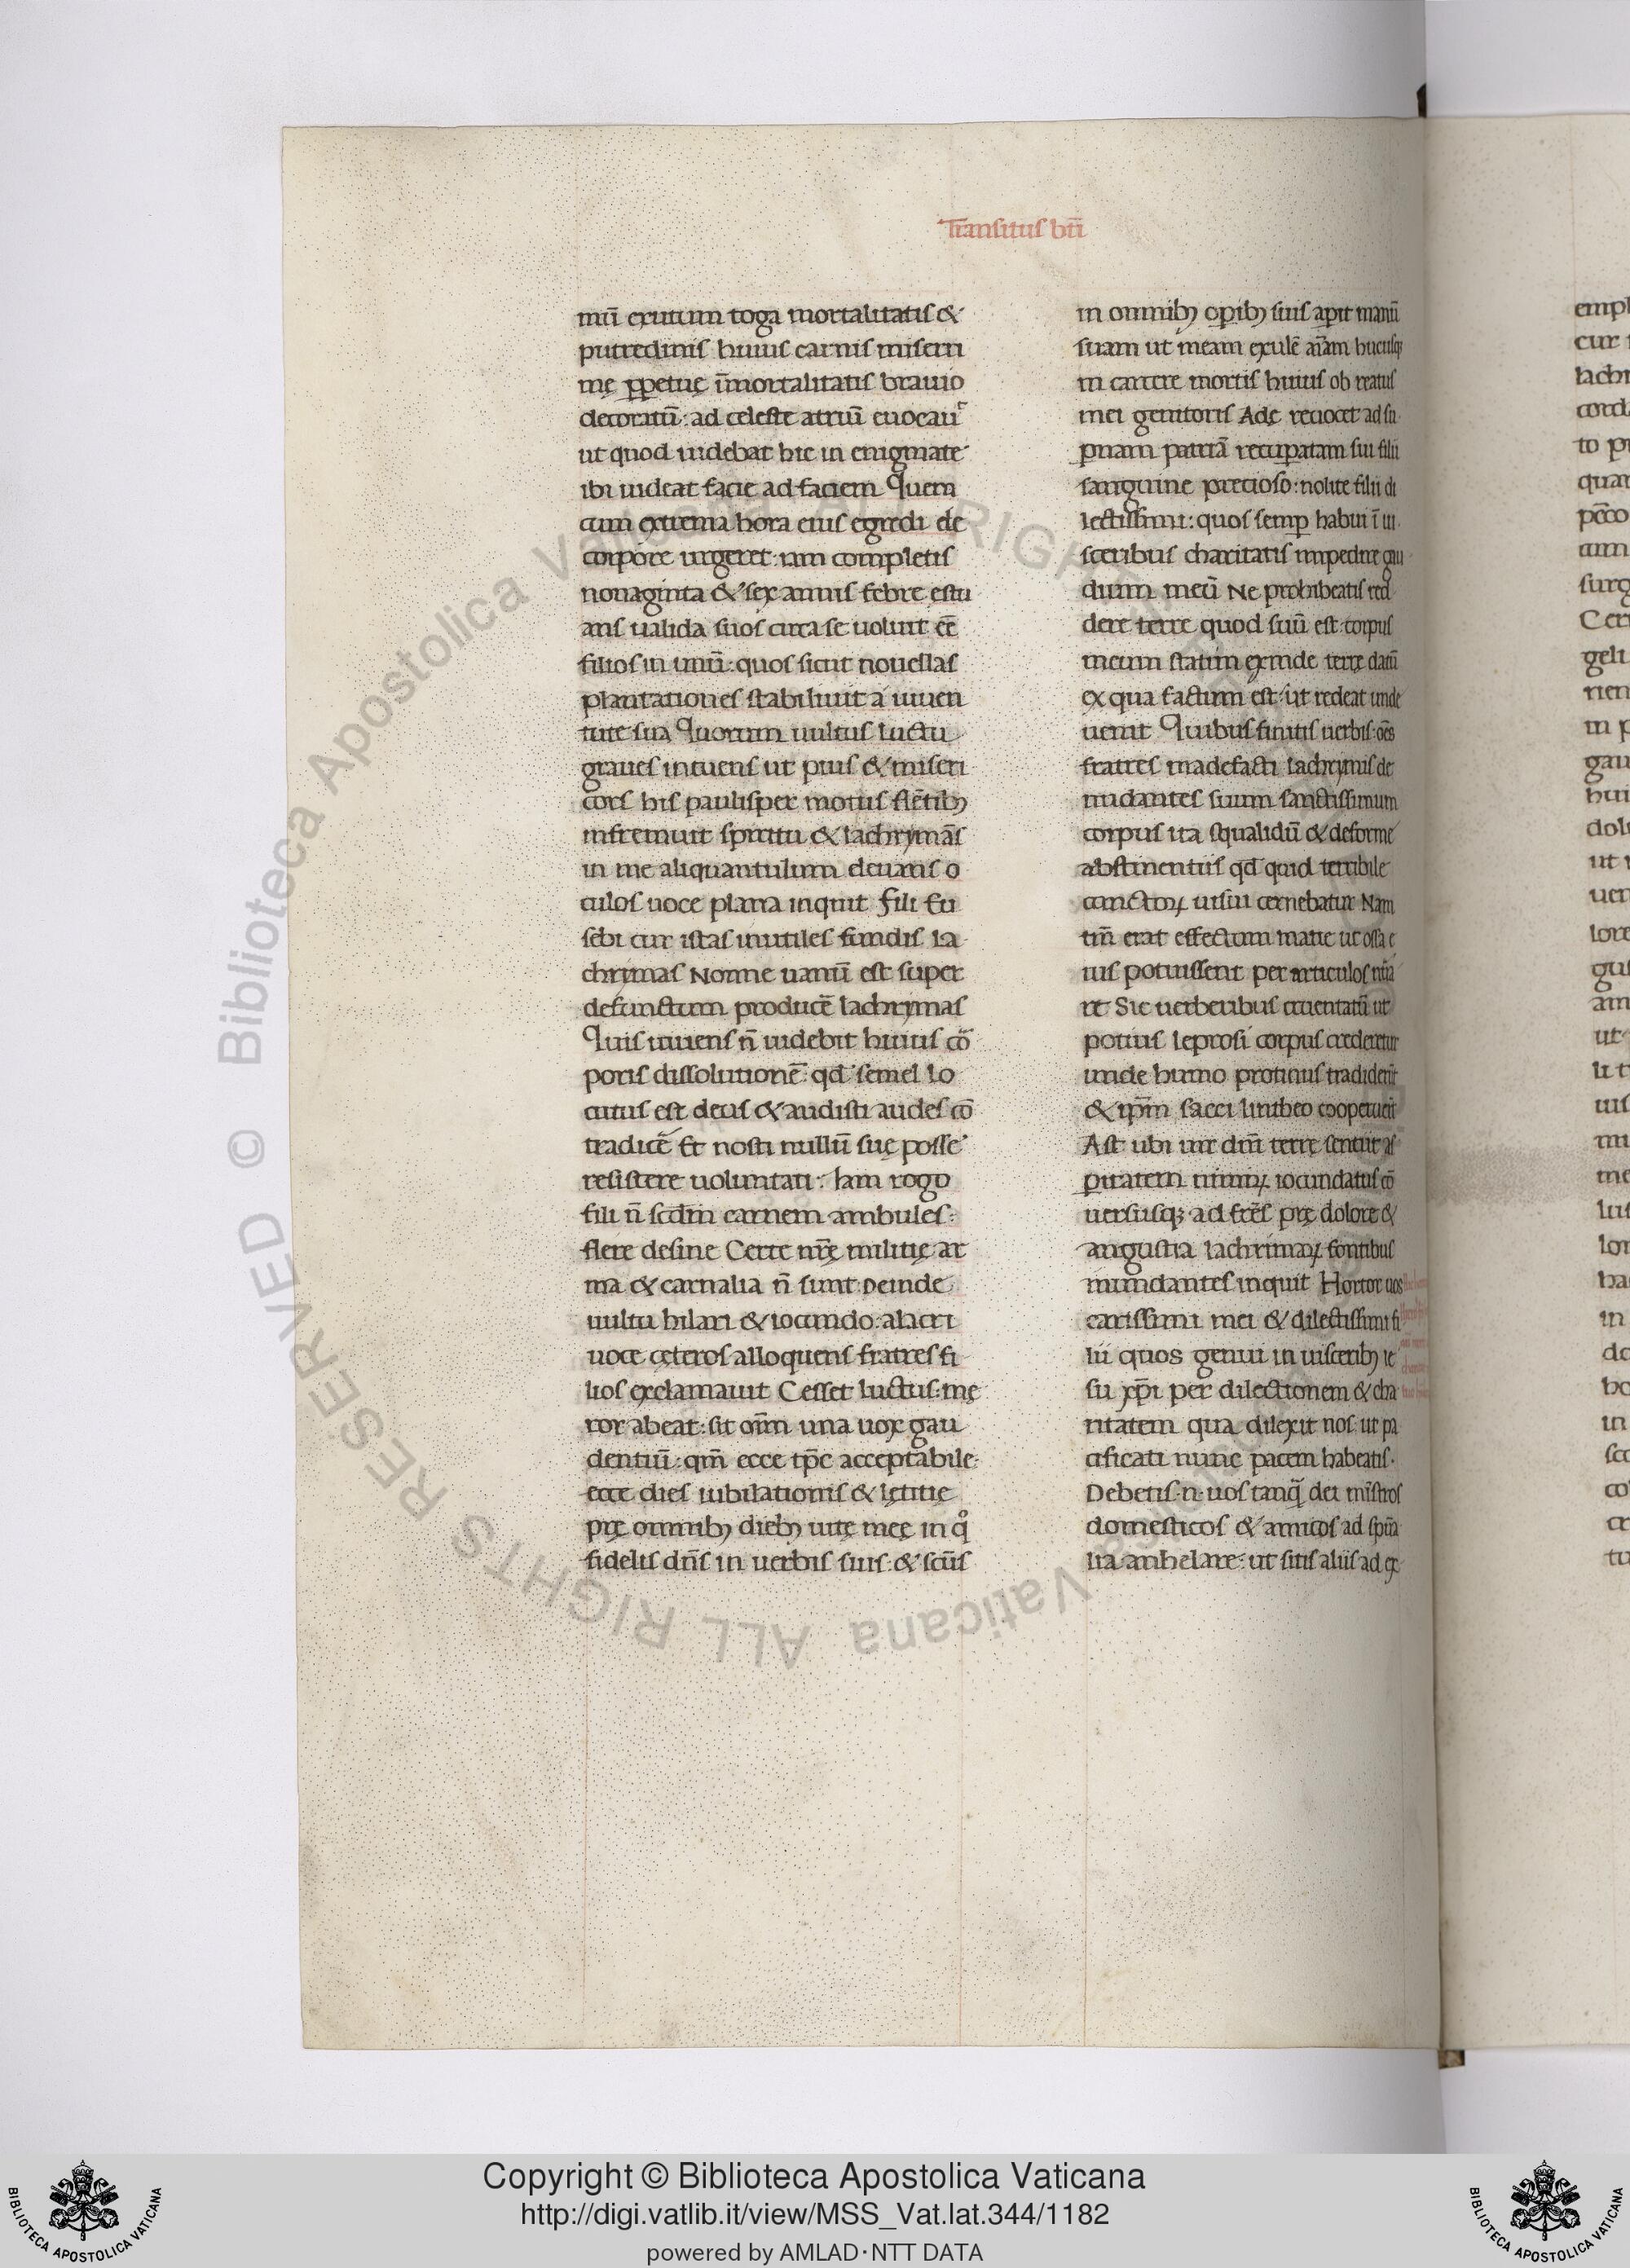 Transitus bt̄i
mū exutum toga mortalitatis &
putredinis huius carnis miseri
mę ꝑpetuę īmortalitatis brauio
decoratū: ad celeste atriū euocauͬ
ut quod uidebat hic in enigmate
ibi uideat facie ad faciem Quem
cum extrema hora eius egredi de
corpore urgeret: iam completis
nonaginta & sex annis febre estu
ans ualida suos circa se uoluit eē
filios in unū: quos sicut nouellas
plantationes stabiliuit a iuuen
tute sua Quorum uultus luctu
graues intuens ut pius & miseri
cors his paulisper motus flētibꝫ
infremuit spiritu & lachrymās
in me aliquantulum eleuans o
culos uoce plana inquit Fili Eu
sebi cur istas inutiles fundis la
chrymas Nonne uanū est super
defunctum producē lachrymas
Quis uiuens n̄ uidebit huius cō
poris dissolutionē: qd̄ semel lo
cutus est deus & audisti audes cō
tradicē Et nosti nullū suę posse
resistere uoluntati: Iam rogo
fili n̄ scd̄m carnem ambules:
flere desine Certe nr̄ę militię ar
ma & carnalia n̄ sunt: Deinde
uultu hilari & iocundo: alacri
uoce cęteros alloquens fratres fi
lios exclamauit Cesset luctus: mę
ror abeat: sit om̄m una uox gau
dentiū: qm̄ ecce tp̄c acceptabile:
ecce dies iubilationis & lętitię
prę omnibꝫ diebꝫ uitę meę in qͦ
fidelis dn̄s in uerbis suis: & scūs
in omnibꝫ oꝑibꝫ suis aꝑit manū
suam ut meam exulē aīam hucusqꝫ
in carcere mortis huius ob reatus
mei genitoris Adę reuocet ad su
pnam patriā recuꝑatam sui filii
sanguine precioso: nolite filii di
lectissimi: quos semꝑ habui ī ui
sceribus charitatis impedire gau
dium meū Ne prohibeatis red
dere terre quod suū est: corpus
meum statim exinde terrę datū
ex qua factum est: ut redeat unde
uenit Quibus finitis uerbis: oēs
fratres madefacti lachrymis de
nudantes suum sanctissimum
corpus ita squalidū & deforme
abstinentiis qd̄ quid terribile
cunctoꝝ uisui cernebatur Nam
tm̄ erat effectum macie ut ossa e
ius potuissent per articulos nūa
re Sic uerberibus cruentatū ut
potius leprosi corpus crederetur
unde humo protinus tradiderūt
& ip̄m sacci lintheo cooperuerūt
Ast ubi uir dn̄i terrę sentiit as
ꝑitatem nimiꝝ iocundatus cō
uersusqꝫ ad frēs prę dolore &
angustia lachrimaꝝ fontibus
mundantes inquit Hortor uos
carissimi mei & dilectissimi fi
lii quos genui in uisceribꝫ ie
su xp̄i per dilectionem & cha
ritatem qua dilexit nos: ut pa
cificati nunc pacem habeatis.
Debetis .n. uos tanq̄ dei mīstros
domesticos & amicos ad spūa
lia anhelare: ut sitis aliis ad ex
Copyright © Biblioteca Apostolica Vaticana
http://digi.vatlib.it/view/MSS_Vat.lat.344/1182
powered by AMLAD·NTT DATA
BIBLIOTECA APOSTOLICA VATICANA
BIBLIOTECA APOSTOLICA VATICANA
© Biblioteca Apostolica Vaticana ALL RIGHTS RESERVED